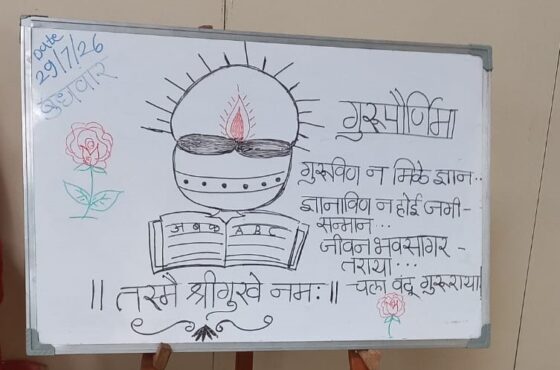 Date
29/7/26
बुधवार
गुरुपौर्णिमा
गुरुविण न मिळे ज्ञान..
ज्ञानाविण न होई जगी-
सन्मान...
जीवन भवसागर -
तराया...
चला वंदू गुरुराया!
अ ब क A B C
॥ तस्मै श्रीगुरवे नमः ॥